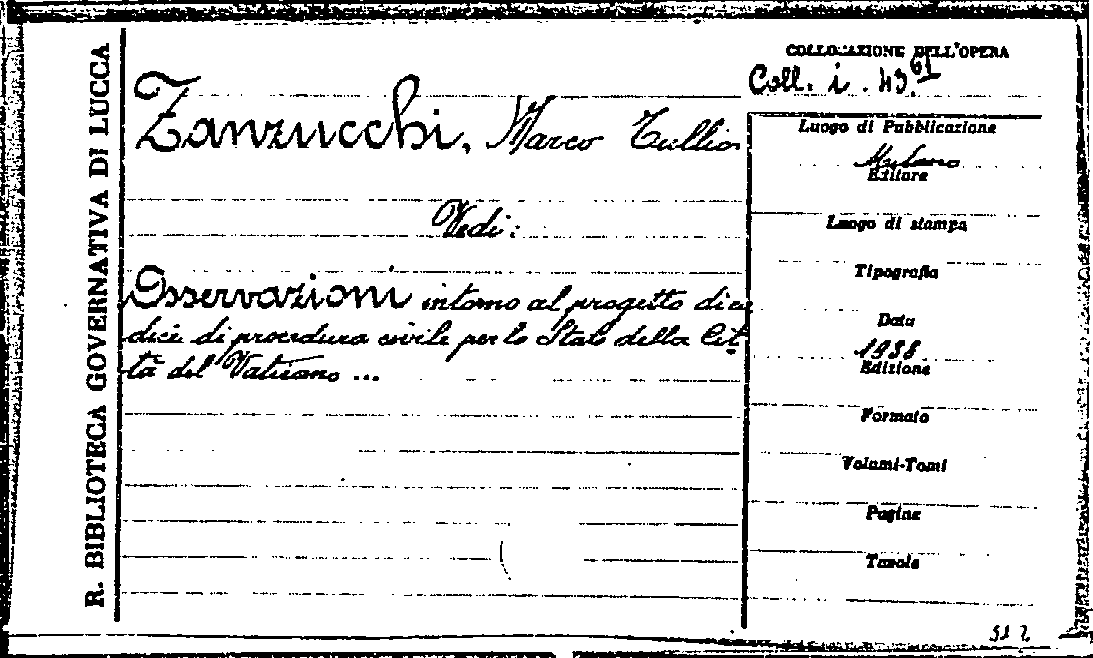 R. BIBLIOTECA GOVERNATIVA DI LUCCA
COLLOCAZIONE DELL'OPERA
Coll. i. 43.61
Zanzucchi, Marco Tullio
Vedi:
Osservazioni intorno al progetto di co
dice di procedura civile per lo Stato della Cit-
tà del Vaticano ...
Luogo di Pubblicazione
Milano
Editore
Luogo di stampa
Tipografia
Data
1938
Edizione
Formato
Volumi-Tomi
Pagine
Tavole